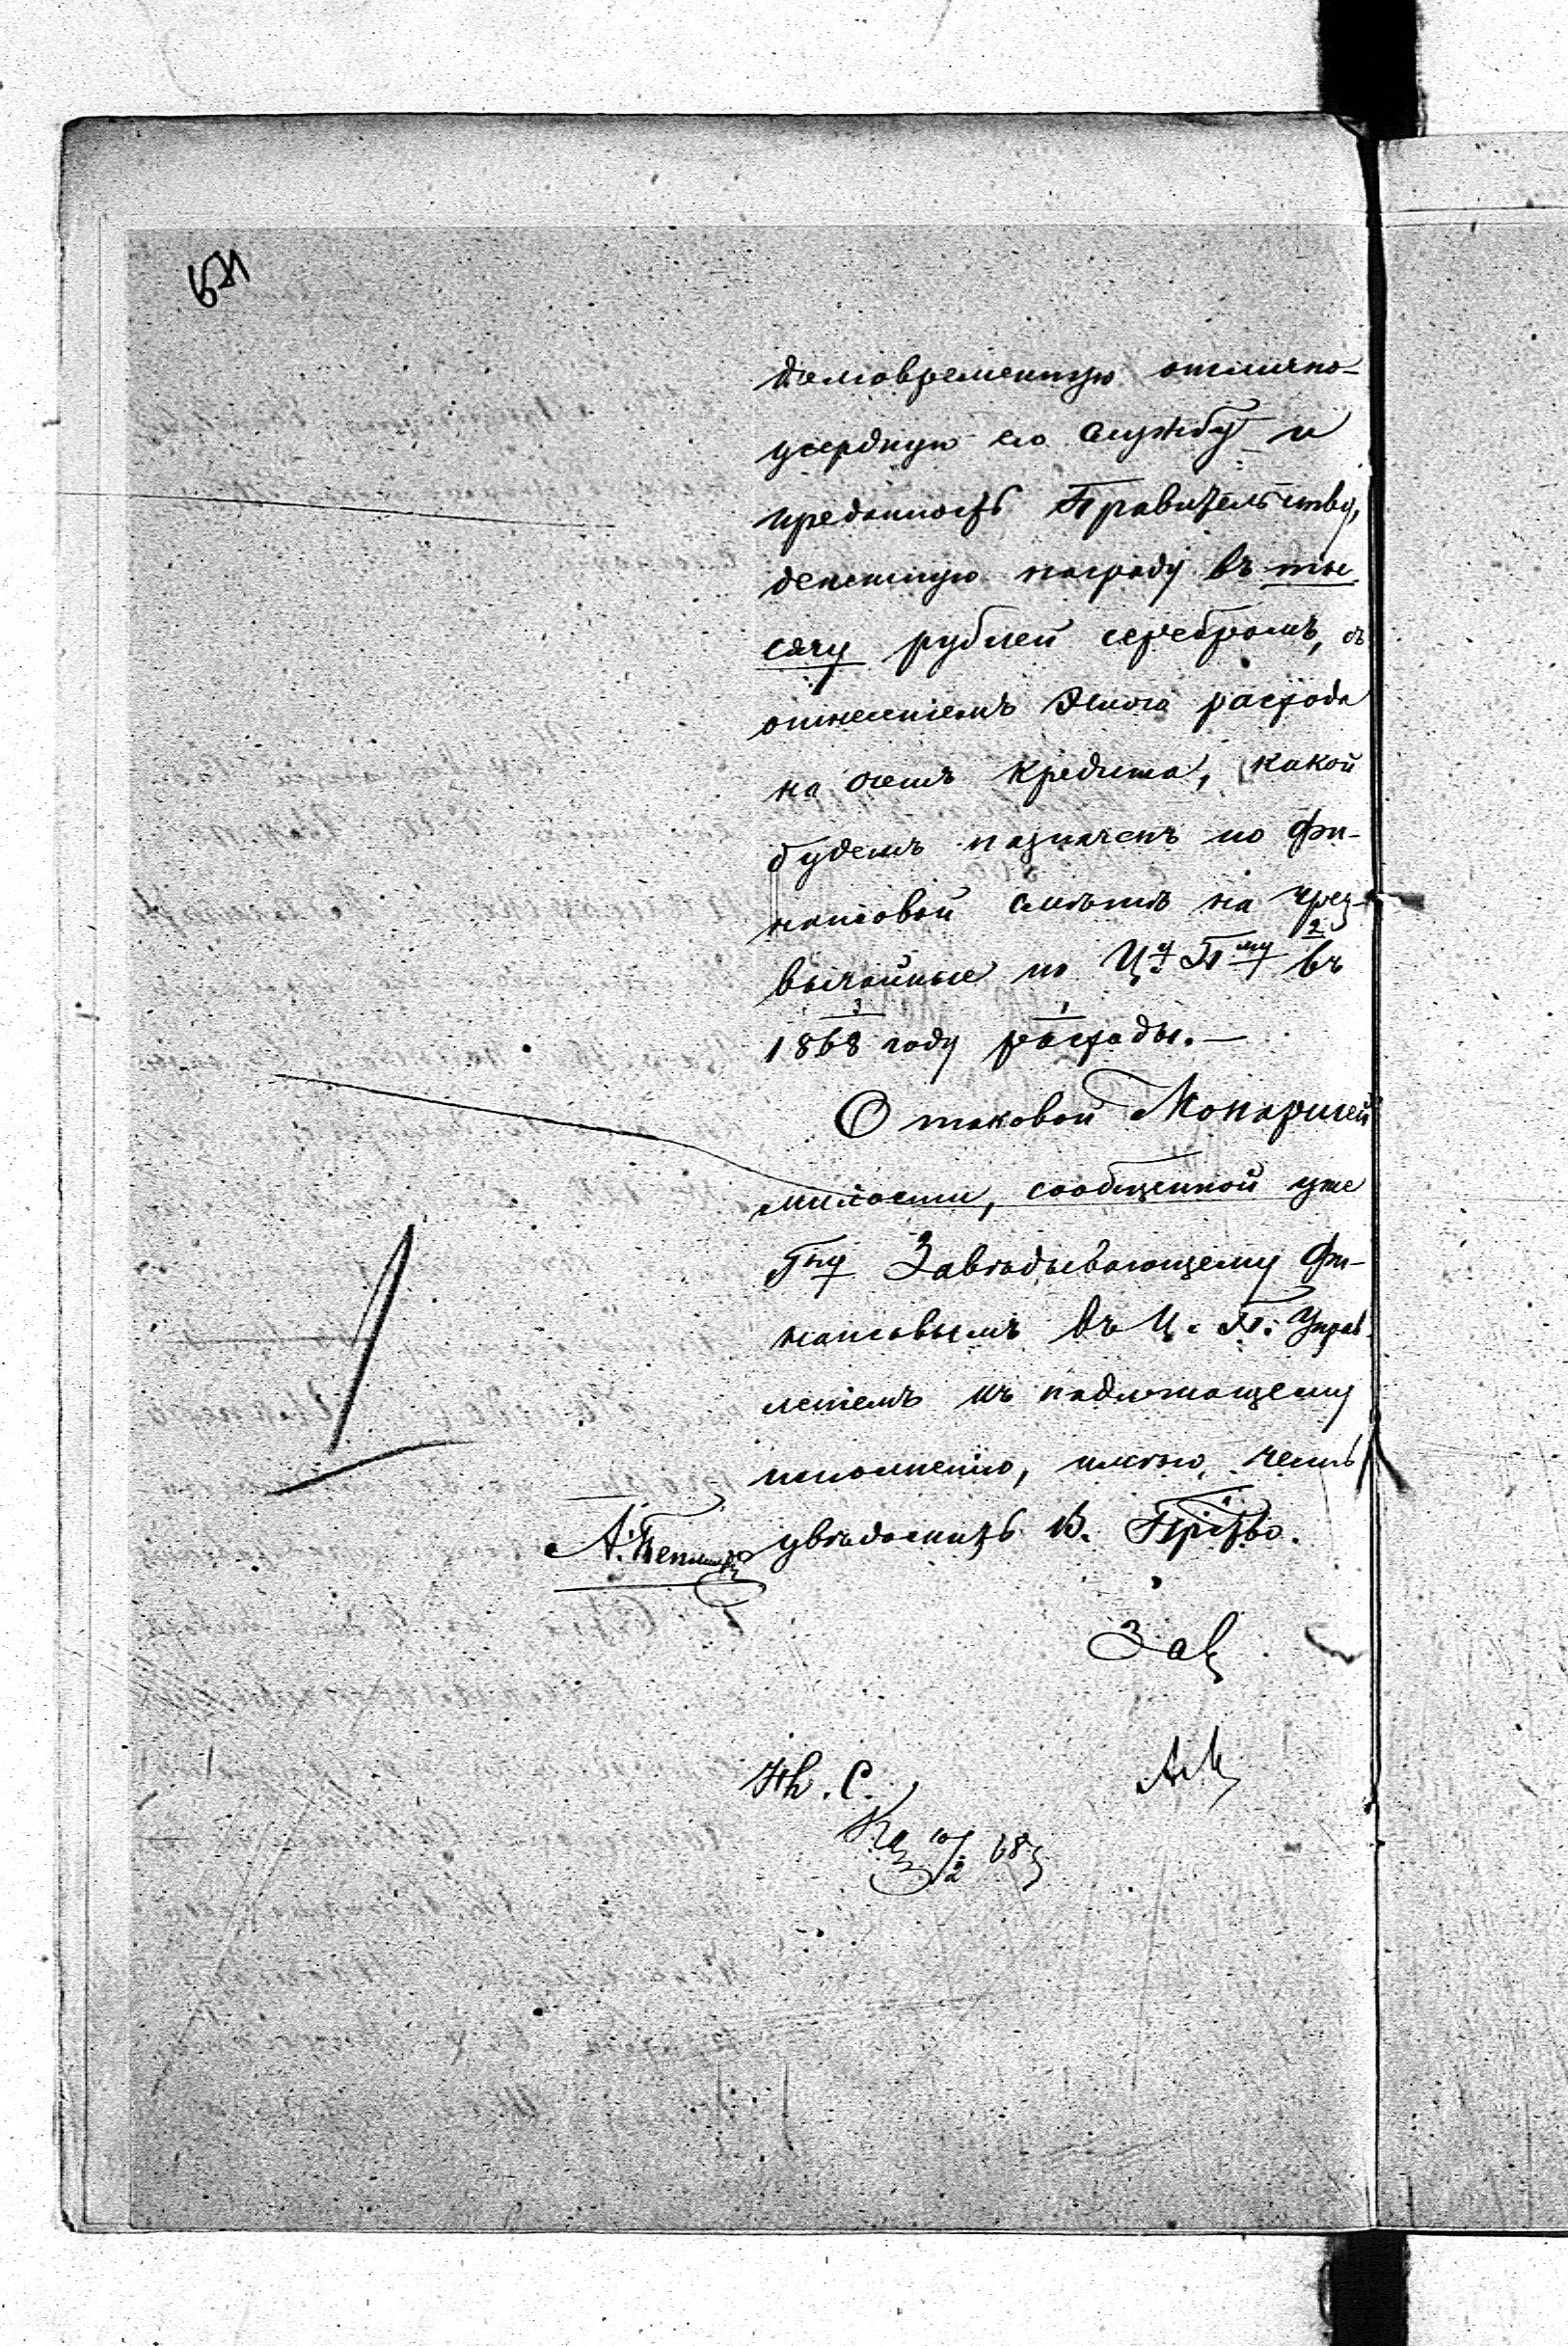 долговременную отлично-
усердную его службу и
преданность Правительству,
денежную награду въ ты
сячу рублей серебромъ, съ
отнесеніемъ этого расхода
на счетъ кредита, какой
будетъ назначенъ по фи-
нансовой смѣтѣ на чрез-
2
вычайные по Ц. П му въ
3 1
1868 году расходы.—
О таковой Монаршей
милости, сообщенной уже
Гну Завѣдывающему Фи-
нансовымъ въ Ц. П. Управ
леніемъ къ надлежащему
исполненію, имѣю честь
увѣдомить В. Прство.
Зав